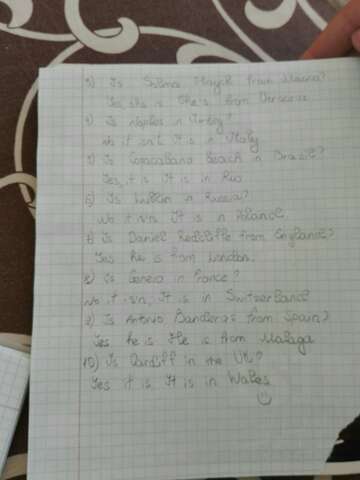 3) Is Salma Hayek from Mexico?
Yes, she is She is from Veracruz
4) Is Naples in Turkey?
No it isnt It is in Italy
5) Is Copacabana Beach in Brazil?
Yes, it is It is in Rio
6) Is Lublin in Russia?
No it isn. It is in Poland.
7) Is Daniel Redcliffe from England?
Yes he is from London.
8) Is Geneva in France?
No it isn, It is in Switzerland
9) Is Antonio Banderas from Spain?
Yes he is He is from Malaga
10) Is Cardiff in the UK?
Yes it is. It is in Wales